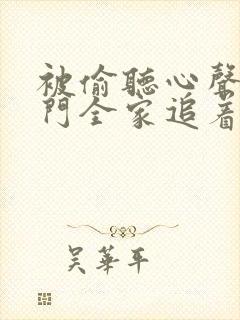 被偷聽心聲
門全家追着
吴華平